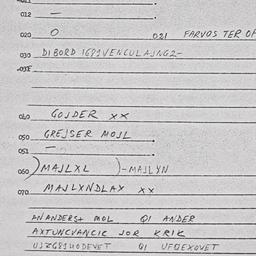 012 —
020 O 021 FARVOS TER OF
030 DIBORD 1691VENCULAJNG2-
040 GOJDER XX
050 GREJSER MOJL
051 —
060 )MAJLXL )-MAJLXN
070 MAJLXNDLAX XX
ANANDERS+ MOL QI ANDER
AXTUNCVANCIC JOR KRIK
QI UFOEXOVET